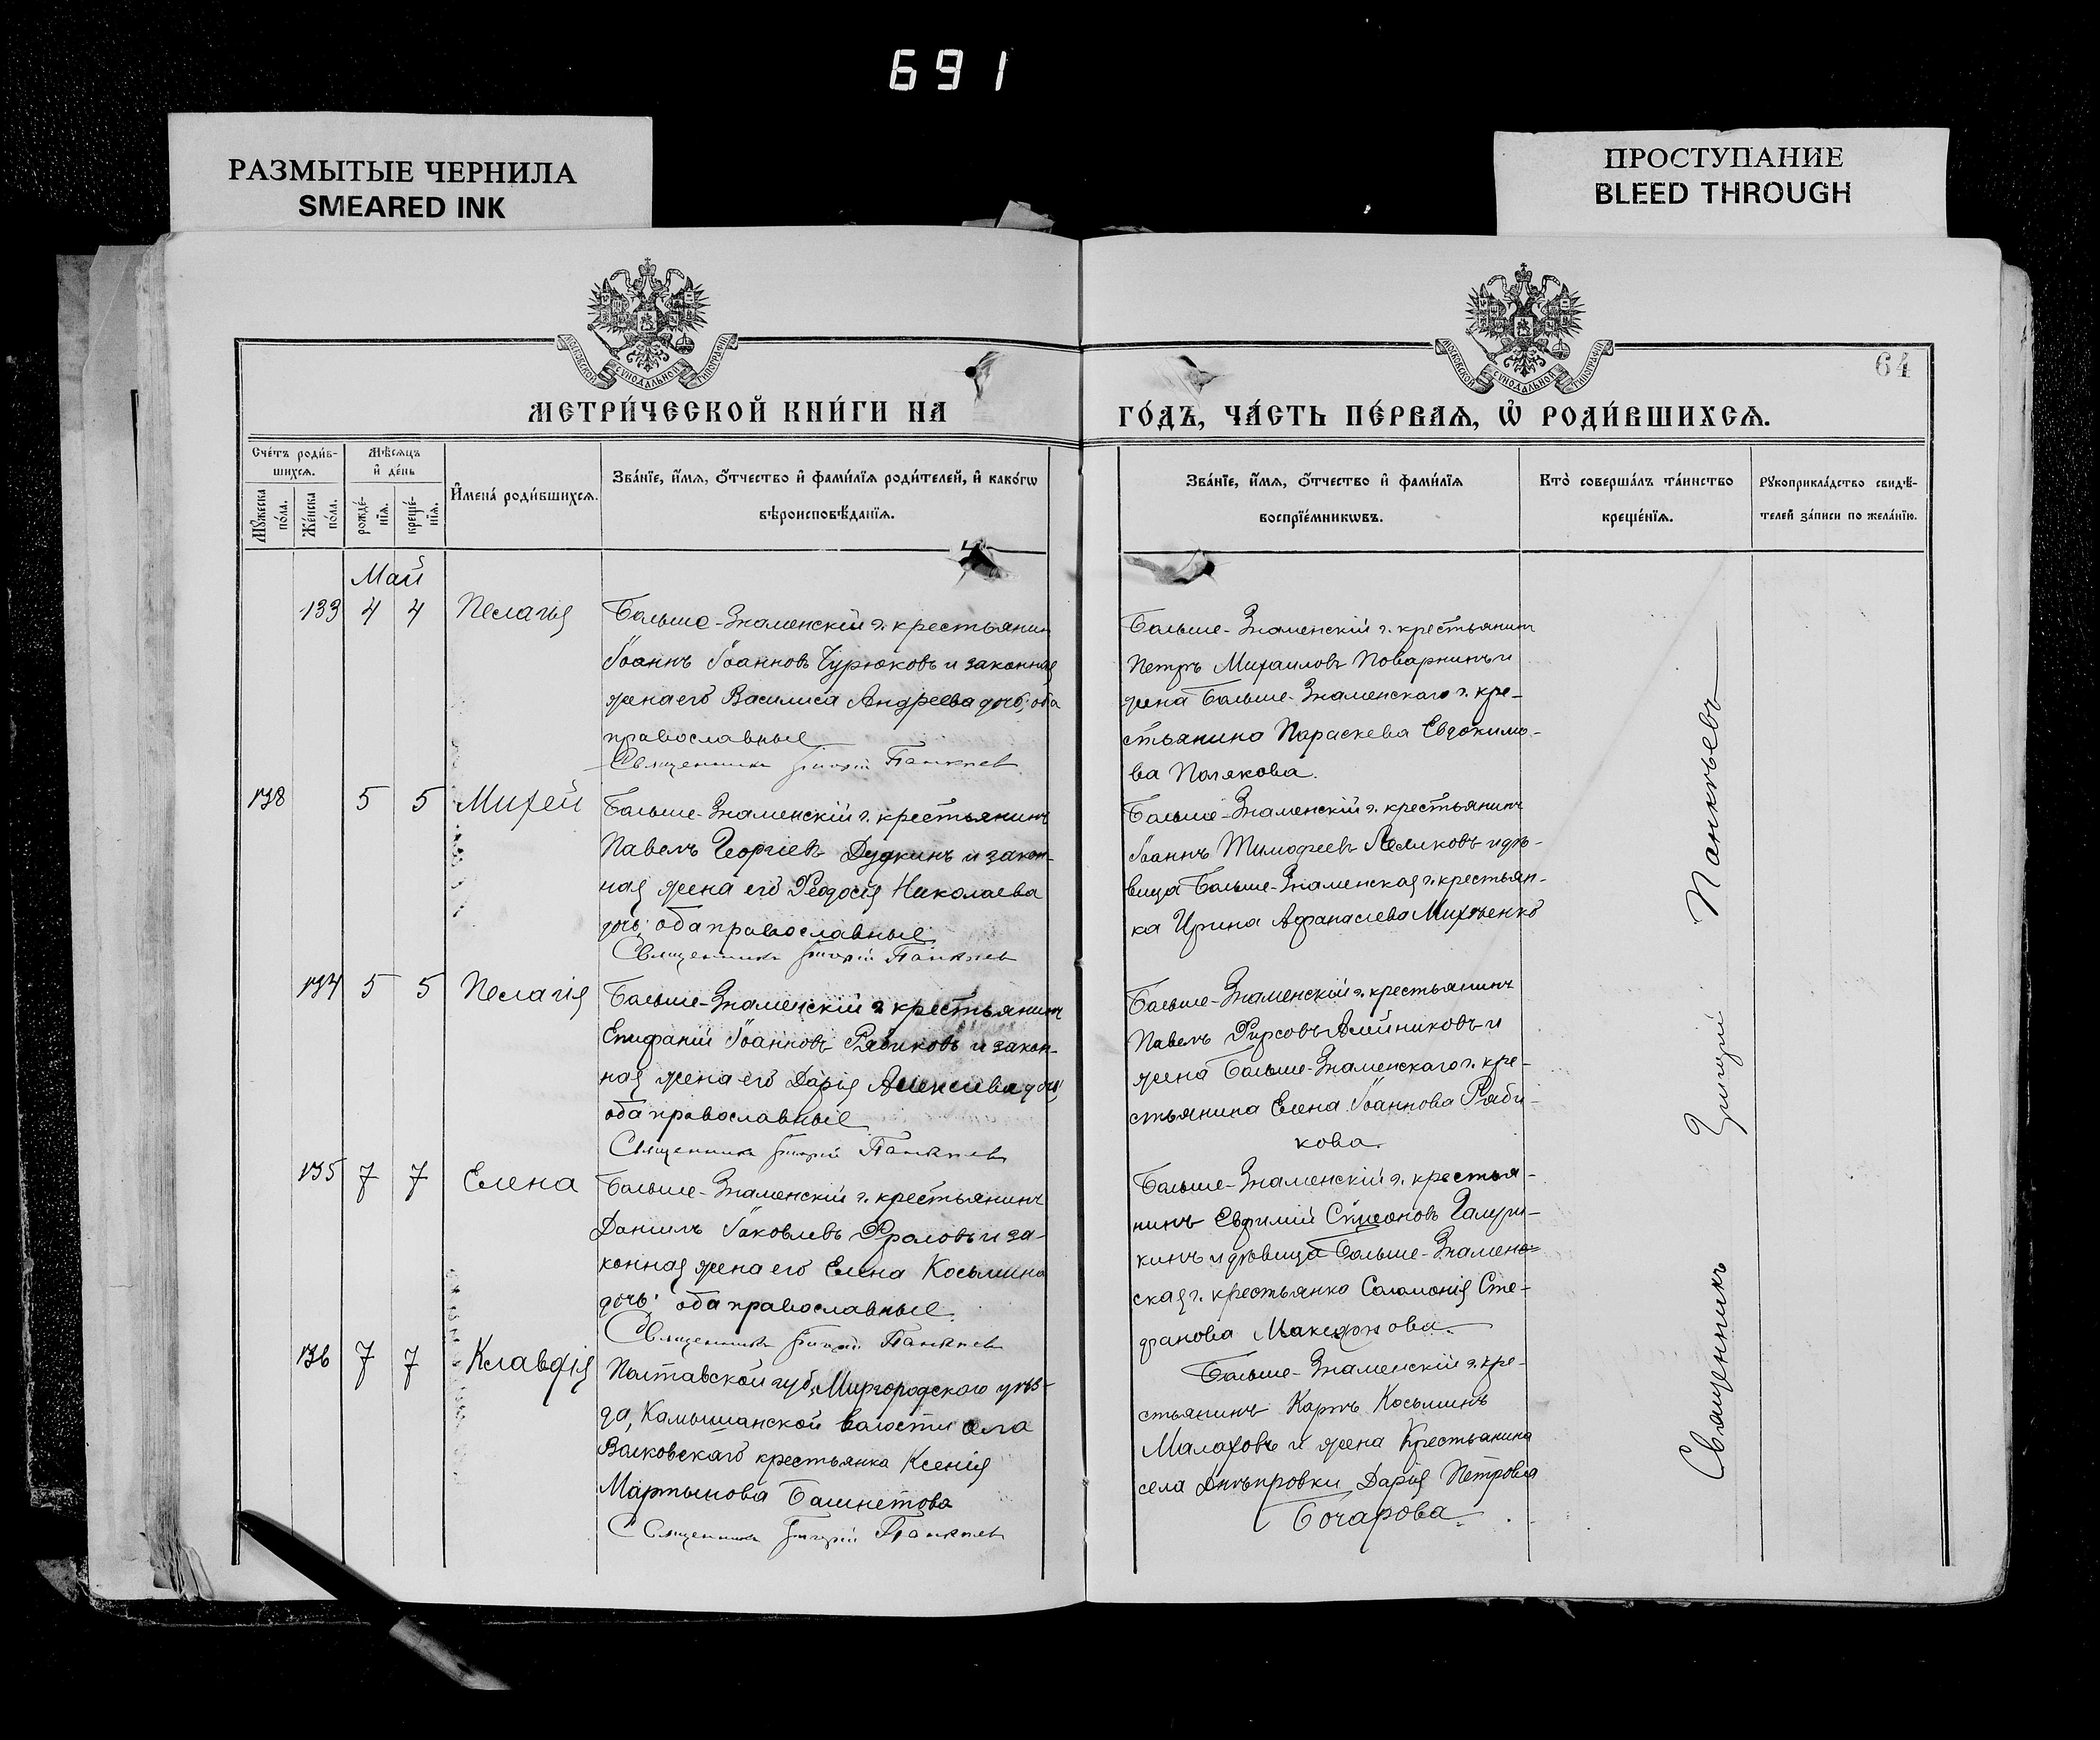 691
РАЗМЫТЫЕ ЧЕРНИЛА
SMEARED INK
ПРОСТУПАНИЕ
BLEED THROUGH
МОСКОВСКОЙ СѴНОДАЛЬНОЙ ТИПОГРАФІИ
МОСКОВСКОЙ СѴНОДАЛЬНОЙ ТИПОГРАФІИ
64
МЕТРИ́ЧЕСКОЙ КНИ́ГИ НА
ГО́ДЪ, ЧА́СТЬ ПЕ́РВАѦ, Ѡ҆ РОДИ́ВШИХСѦ.
Сче́тъ роди́в-
шихсѧ.
Мꙋ́жеска по́ла.
Же́нска по́ла.
Мѣ́сѧцъ
и҆ де́нь
рожде́-
нїѧ.
креще́-
нїѧ.
И҆мена̀ роди́вшихсѧ.
Зва́нїе, и҆́мѧ, ѻ҆́тчество и҆ фами́лїѧ роди́телей, и҆ како́гѡ
вѣроисповѣ́данїѧ.
Зва́нїе, и҆́мѧ, ѻ҆́тчество и҆ фами́лїѧ
воспрїе́мникѡвъ.
Кто̀ соверша́лъ та́инство
креще́нїѧ.
Рꙋкоприкла́дство свидѣ́-
телей за́писи по жела́нїю.
Май
133 4 4 Пелагія
Больше-Знаменскій г. крестьянин
Іоаннъ Іоанновъ Чурюковъ и законная
жена его Василиса Андреева дочь; оба
православные
Священникъ Григорій Панкѣев
Больше-Знаменскій г. крестьянинъ
Петръ Михаиловъ Поварнинъ и
жена Больше-Знаменскаго г. кре-
стьянина Параскева Евдокимо-
ва Полякова.
138 5 5 Михей
Больше-Знаменскій г. крестьянинъ
Павелъ Георгіевъ Дудкинъ и закон-
ная жена его Феодосія Николаева
дочь; оба православные
Священникъ Григорій Панкѣев
Больше-Знаменскій г. крестьянинъ
Іоаннъ Тимофеевъ Лемековъ и дѣ-
вица Больше-Знаменская г. крестьян-
ка Ирина Афанасіева Михѣенко
134 5 5 Пелагія
Больше-Знаменскій г. крестьянинъ
Епифаній Іоанновъ Рябиковъ и закон-
ная жена его Дарія Алексиева дочь;
оба православные
Священникъ Григорій Панкѣев
Больше-Знаменскій г. крестьянинъ
Павелъ Фирсовъ Алейниковъ и
жена Больше-Знаменскаго г. кре-
стьянина Елена Іоаннова Ряби-
кова.
135 7 7 Елена
Больше-Знаменскій г. крестьянинъ
Даніилъ Іаковлевъ Фроловъ и за-
конная жена его Елена Косьмина
дочь; оба православные
Священникъ Григорій Панкѣев
Больше-Знаменскій г. крестья-
нинъ Евфимій Симеоновъ
кинъ и дѣвица Больше-Знамен-
ская г. крестьянка Соломонія Сте-
фанова Македонова.
136 7 7 Клавдія
Полтавской губ., Миргородскаго уѣз-
да, Камышанской волости села
Волковскаго крестьянка Ксенія
Мартынова Башнетова
Священникъ Григорій Панкѣев
Больше-Знаменскій г. кре-
стьянинъ Карпъ Косьминъ
Малаховъ и жена Крестьянина
села Днѣпровки Дарія Петрова
Бочарова.
Священникъ Григорій Панкѣевъ